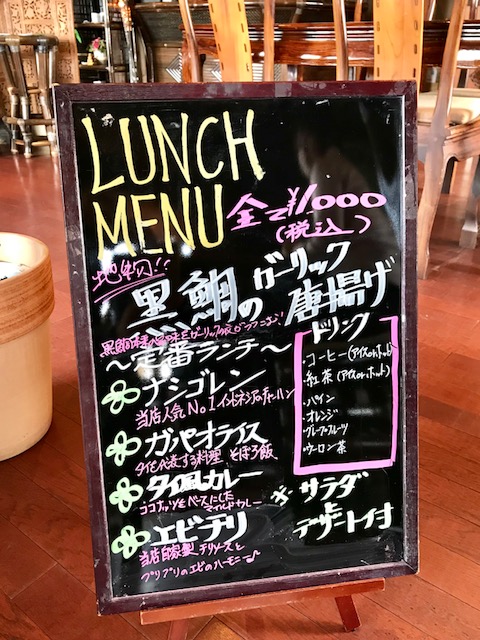 LUNCH
MENU
全て¥1,000
(税込)
地物!!
黒鯛のガーリック
唐揚げ
～定番ランチ～
ナシゴレン
当店人気No.1インドネシアのチャーハン
ガパオライス
タイを代表する料理 そぼろ飯
タイ風カレー
ココナッツをベースにした
マイルドカレー
エビチリ
当店自家製チリソースと
プリプリのエビのハーモニー♪
ドリンク
・コーヒー(アイスorホット)
・紅茶(アイスorホット)
・パイン
・オレンジ
・グレープフルーツ
・ウーロン茶
サラダ
と
デザート付